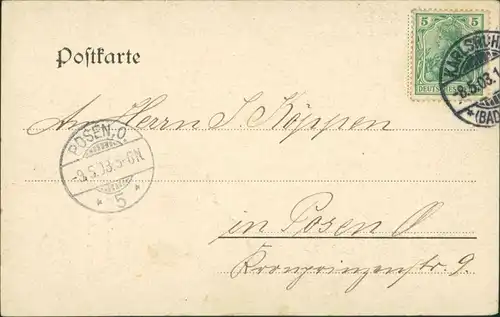 Postkarte
5 5
DEUTSCHES REICH
KARLSRUHE
-8.5.03.
*(BAD
An Herrn S. Köppen
POSEN.O.
-9.5.03.5-6N.
* 5 *
in Posen O
Kronprinzenstr. 9.